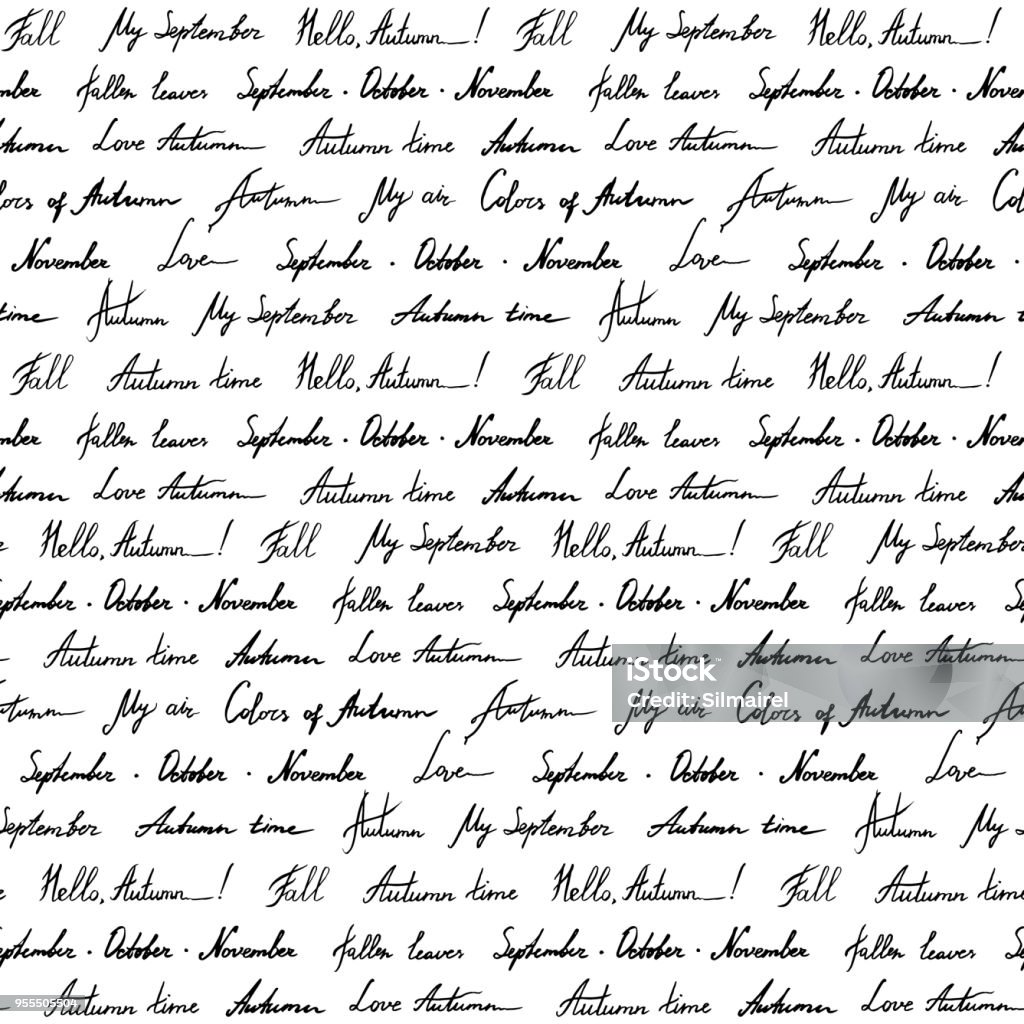 Fall My September Hello, Autumn! Fall My September Hello, Autumn!
mber Fallen leaves September · October · November Fallen leaves September · October · Novem
Autumn Love Autumn Autumn time Autumn Love Autumn Autumn time Au
lors of Autumn Autumn My air Colors of Autumn Autumn My air Co
November Love September · October · November Love September · October ·
time Autumn My September Autumn time Autumn My September Autumn t
Fall Autumn time Hello, Autumn! Fall Autumn time Hello, Autumn!
mber Fallen leaves September · October · November Fallen leaves September · October · Novem
Autumn Love Autumn Autumn time Autumn Love Autumn Autumn time Au
Hello, Autumn! Fall My September Hello, Autumn! Fall My September
eptember · October · November Fallen leaves September · October · November Fallen leaves Se
Autumn time Autumn Love Autumn Autumn time Autumn Love Autumn
iStock
Credit: Silmairel
utumn My air Colors of Autumn Autumn My air Colors of Autumn A
September · October · November Love September · October · November Love
September Autumn time Autumn My September Autumn time Autumn My S
Hello, Autumn! Fall Autumn time Hello, Autumn! Fall Autumn time
eptember · October · November Fallen leaves September · October · November Fallen leaves Se
955505504
Autumn time Autumn Love Autumn Autumn time Autumn Love Autumn